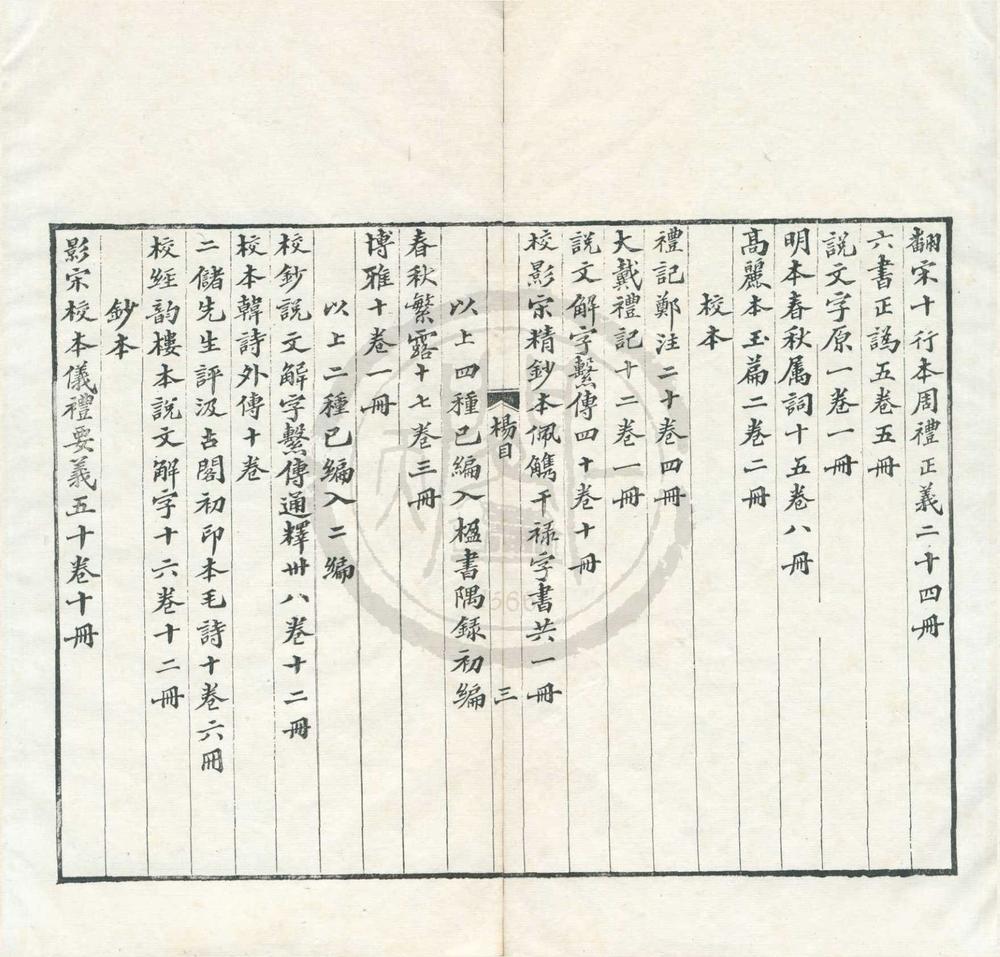 翻宋十行本周禮正義二十四冊
六書正譌五卷五冊
說文字原一卷一冊
明本春秋属詞十五卷八冊
高麗本玉篇二卷二冊
校本
禮記鄭注二十卷四冊
大戴禮記十二卷一冊
說文解字繫傳四十卷十冊
校影宋精鈔本佩觿干禄字書共一冊
楊目
三
以上四種已編入楹書隅録初編
春秋繁露十七卷三冊
博雅十卷一冊
以上二種已編入二編
校鈔說文解字繫傳通釋卅八卷十二冊
校本韓詩外傳十卷
二儲先生評汲古閣初印本毛詩十卷六冊
校經韵樓本說文解字十六卷十二冊
鈔本
影宋校本儀禮要義五十卷十冊